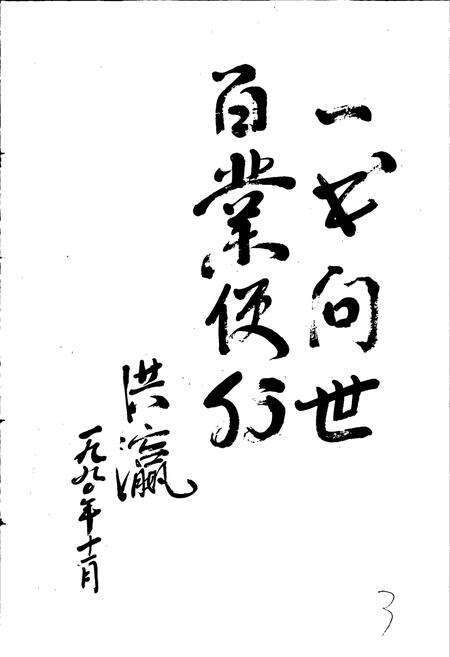 一书问世
百業便行
洪瀛
一九九〇年十二月
3